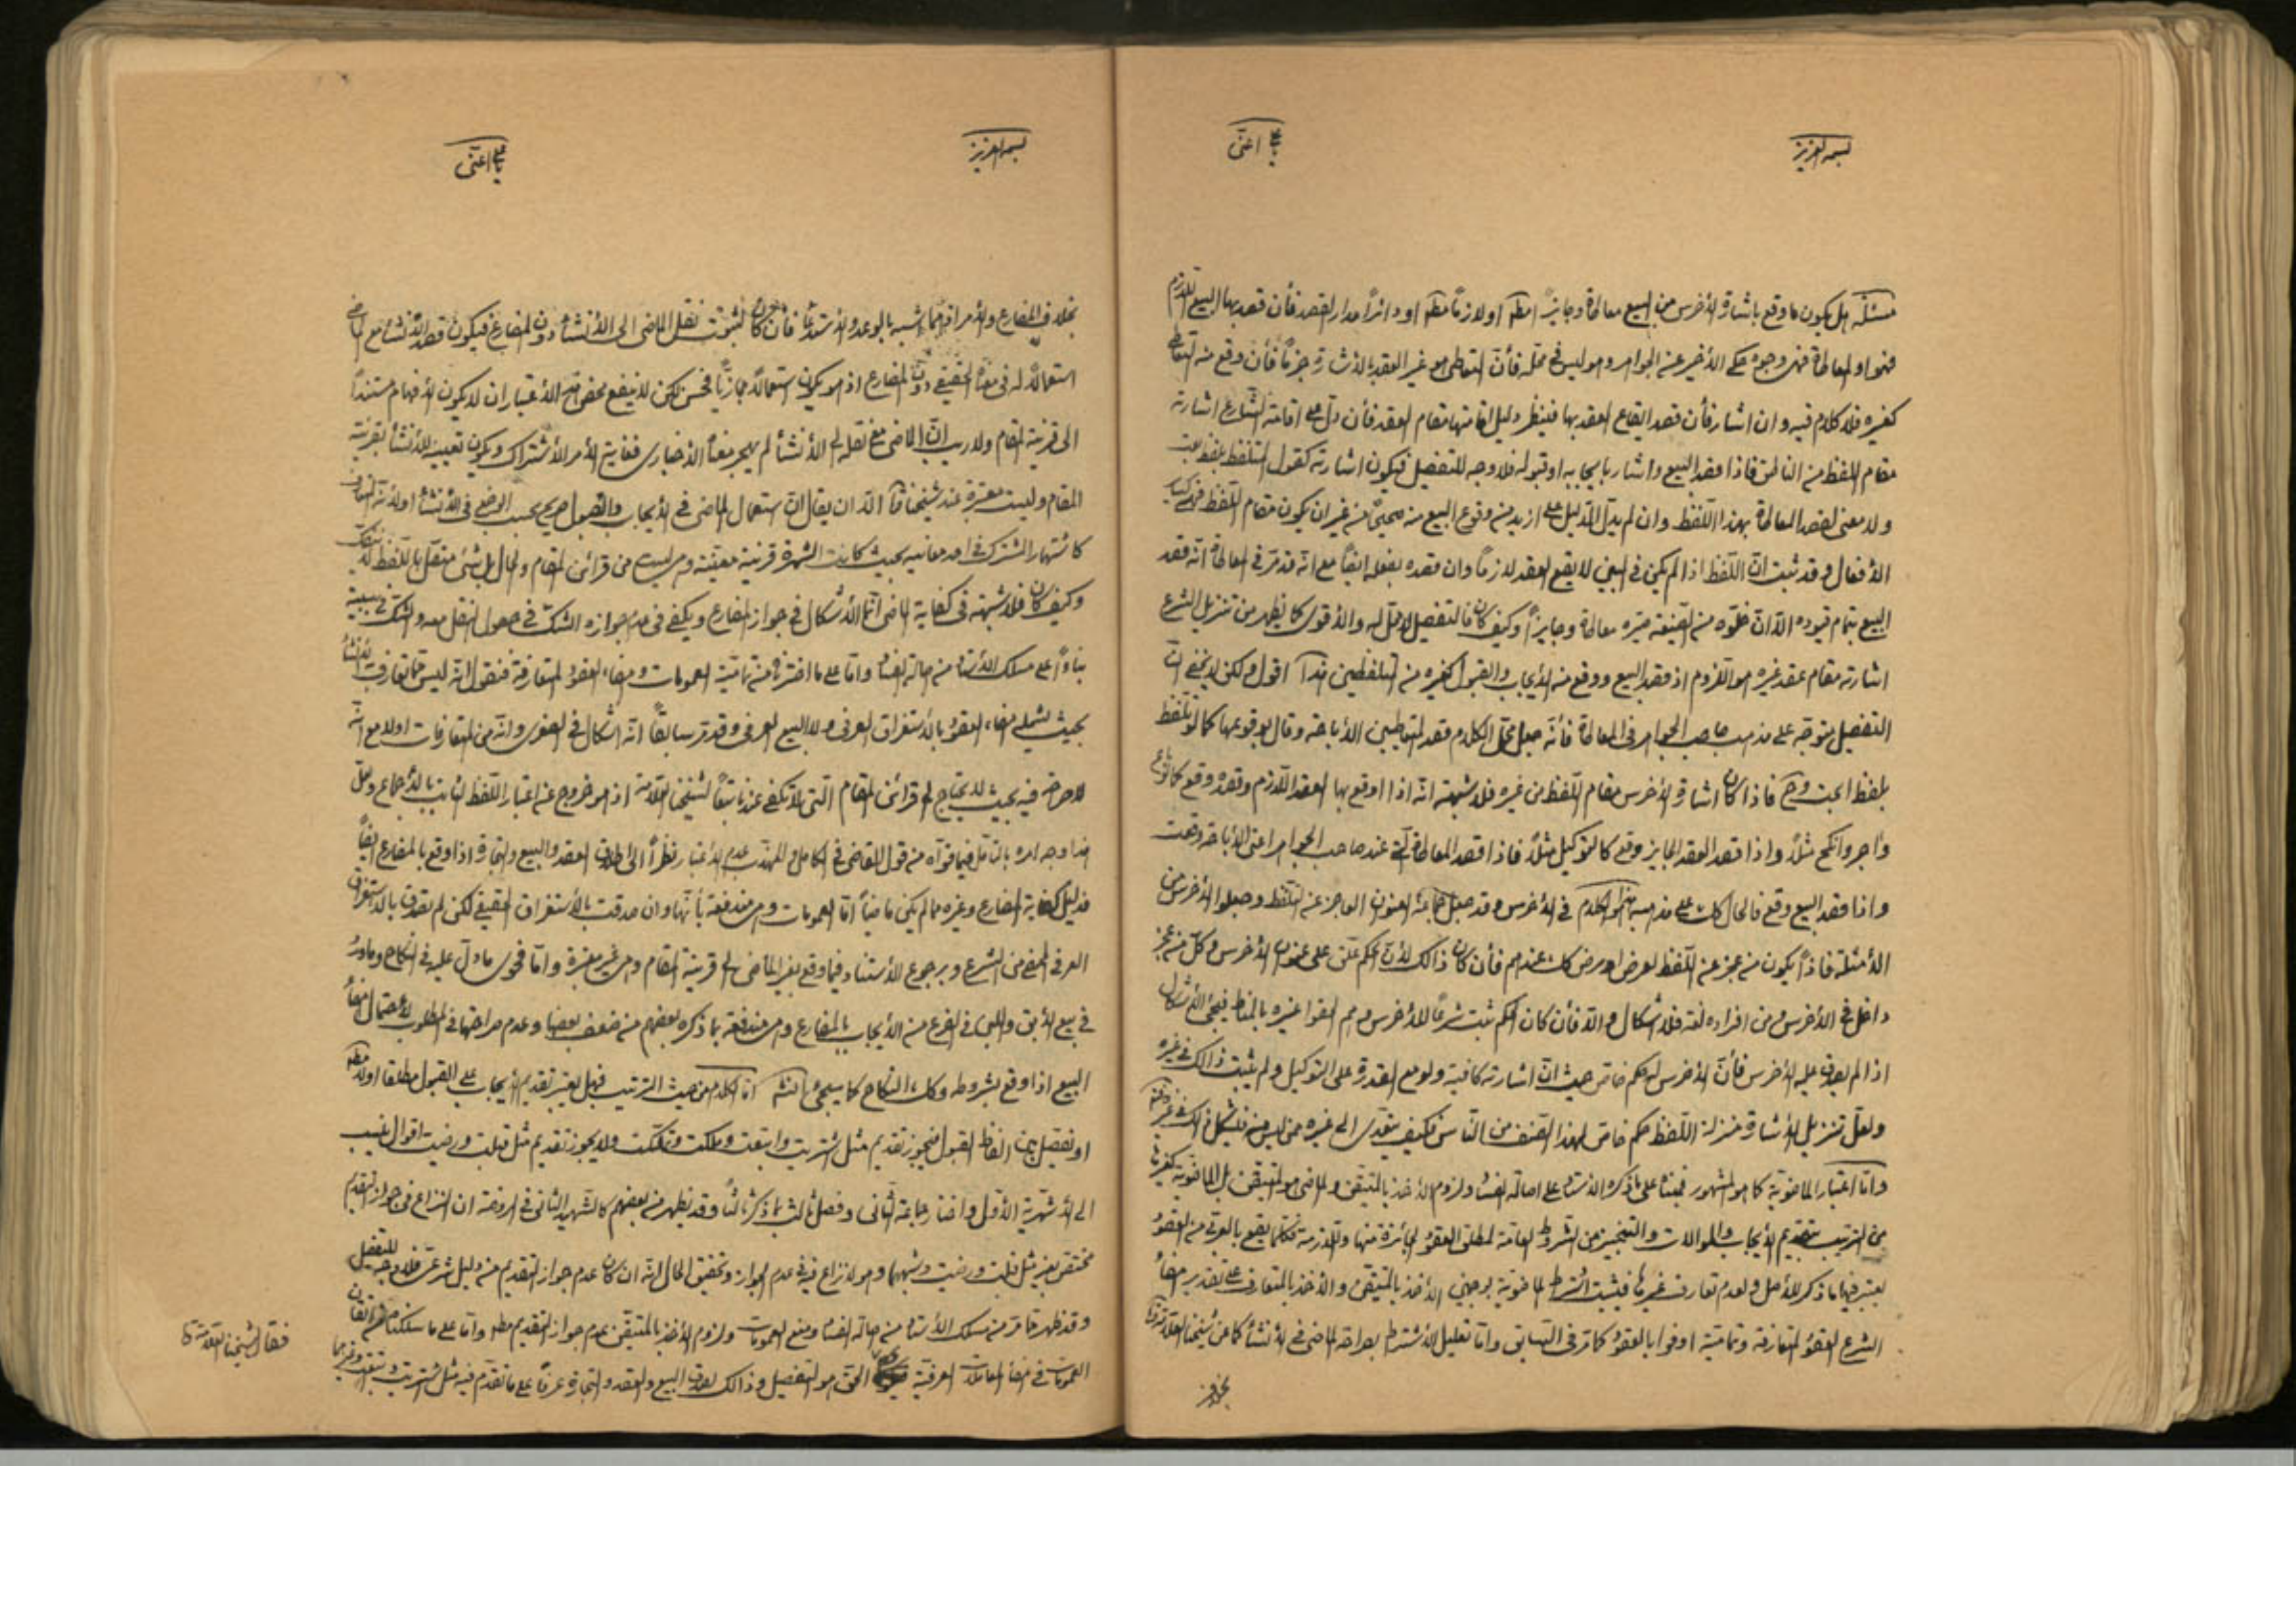 بسم العزيز
يا علي اعنّى
مسئلة هل يكون ما وقع باشارة الأخرس من البيع معاطاة وجايزاً مطه او لازماً مطه او دائراً مدار القصد فأن قصد بها البيع اللازم
فهو او المعاطاة فهى وجوه حكى الأخير عن الجواهر وهو ليس في محلّه فأنّ التعاطى هو غير العقد بالأشارة جزماً فأن وقع منه التعاطى
كغيره فلا كلام فيه وان اشار فأن قصد ايقاع العقد بها فينظر دليل اقامتها مقام العقد فأن دلّ على اقامة الشارع اشارته
مقام اللفظ من الناطق فاذا قصد البيع واشار بايجابه او قبوله فلا وجه للتفصيل فيكون اشارته كقول المتلفظ بلفظ بعت
ولا معنى لقصد المعاطاة بهذا اللفظ وان لم يدلّ الدليل على ازيد من وقوع البيع منه صحيحاً من غير ان يكون مقام اللفظ فهى كساير
الأفعال وقد ثبت انّ اللفظ اذا لم يكن في البين لا يقع العقد لازماً وان قصده بفعله ايضاً مع انه قد مرّ في المعاطاة انه قصد
البيع بتمام قيوده الّا انّ خلوّه من الصيغة صيّره معاطاة وجايزاً وكيف كان فالتفصيل لا محلّ له والأقوى كما يظهر من تنزيل الشرع
اشارته مقام عقد غيره هو اللزوم اذ قصد البيع ووقع منه الأيجاب والقبول كغيره من المتلفظين هذا اقول ولكن لا يخفى انّ
التفصيل متوجّه على مذهب صاحب الجواهر في المعاطاة فأنّه جعل محل الكلام قصد المتعاطيين الأباحة وقال بوقوعها كما لو تلفظ
بلفظ ابحت وح فاذا كان اشارة الأخرس مقام اللفظ من غيره فلا شبهة انّه اذا اوقع بها العقد اللازم وقصده وقع كما
وآجر وانكح مثلاً واذا قصد العقد الجايز وقع كالتوكيل مثلاً فاذا قصد المعاطاة التى عند صاحب الجواهر اعنى الأباحة وقعت
واذا قصد البيع وقع فالحال كك على مذهبه هذا الكلام في الأخرس وقد جعل جماعة العنوان العاجز عن التلفظ وجعلوا الأخرس من
الأمثلة فاذاً يكون من عجز عن التلفظ لعرض او مرض كك عندهم فأن كان ذالك لأنّ الحكم علّق على عنوان الأخرس وكلّ من عجز
داخل في الأخرس ومن افراده لغة فلا اشكال والّا فأن كان الحكم ثبت شرعاً للأخرس وهم الحقوا غيره بالمناط فيجئ الأشكال
اذا لم يصدق عليه الأخرس فأنّ الأخرس له حكم خاص حيث انّ اشارته كافية ولو مع القدرة على التوكيل ولم يثبت ذالك في غيره
ولعلّ تنزيل الأشارة منزلة اللفظ حكم خاص لهذا الصنف من الناس فكيف يتعدى الى غيره ممن ليس منه فيشكل ذالك
وامّا اعتبار الماضوية كما هو المشهور فبناءً على ما ذكره الأستاد على اصالة الفساد ولزوم الأخذ بالمتيقن والماضى هو المتيقن بل الماضوية كغيرها
من الترتيب بتقديم الأيجاب والموالات والتنجيز من الشروط العامة لمطلق العقود الجائزة منها واللازمة فكلّما يقع بالعربى من العقود
يعتبر فيها ما ذكر للأصل ولعدم تعارف غيرها فيثبت اشتراط الماضوية بوجهين الأخذ بالمتيقن والأخذ بالمتعارف على تقدير امضاء
الشرع العقود المتعارفة وتمامية اوفوا بالعقود كما مرّ في السابق وامّا تعليل الأشتراط بصراحة الماضى في الأنشاء كما عن شيخنا العلامة
بخلاف
بسم العزيز
يا علي اعنّى
بخلاف المضارع والأمر فانهما اشبه بالوعد والأستدعاء فأن كان لثبوت نقل الماضى الى الأنشاء دون المضارع فيكون قصد الأنشاء مع الماضى
استعمالاً له في معناه الحقيقى دون المضارع اذ هو يكون استعمالاً مجازياً فحسن لكن لا ينفع بمحض هذا الأعتبار ان لا يكون الأفهام مستنداً
الى قرينة المقام ولا ريب انّ الماضى مع نقله الى الأنشاء لم يهجر معناه الأخبارى فغاية الأمر الأشتراك ويكون تعيينه للأنشاء بقرينة
المقام وليست معتبرة عند شيخنا الّا ان يقال انّ استعمال الماضى في الأيجاب والقبول صريح بحسب الوضع في الأنشاء اولاً
كاشتهار المشترك في احد معانيه بحيث كانت الشهرة قرينة معينة وهى ليست من قرائن المقام والحال بل شئ متصل باللفظ لا ينفك
وكيف كان فلا شبهة في كفاية الماضى انما الأشكال في جواز المضارع ويكفى في عدم جوازه الشك في حصول النقل معه والشك في سببيته
بناءً على مسلك الأستاد من اصالة الفساد وامّا على ما اخترناه من تمامية العمومات وامضاء العقود المتعارفة فنقول انّه ليس مما تعارف الأنشاء
بحيث يشمله امضاء العقود بالأستغراق العرفى ولا البيع العرفى وقد مرّ سابقاً انّه اشكال في الصغرى وانّه من المتعارفات اولا مع انّه
لا صراحة فيه بحيث لا يحتاج الى قرائن المقام التى لا تكفى عندنا تبعاً لشيخنا العلامة اذ هو خروج عن اعتبار اللفظ الثابت بالأجماع ولعلّ
هذا وجه امره بالتأمل فيما قوّاه من قول القاضى في الكامل والمهذب بعدم الأعتبار نظراً الى اطلاق العقد والبيع والتجارة اذا وقع بالمضارع ايضاً
فدليل كفاية المضارع وغيره مما لم يكن ماضياً امّا العمومات وهى مندفعة بأنها وان صدقت بالأستغراق الحقيقى لكن لم يصدق بالأستغراق
العرفى الممضى من الشرع وبرجوع الأستناد فيما وقع بغير الماضى الى قرينة المقام وهى غير معتبرة وامّا فحوى ما دلّ عليه في النكاح وما ورد
في بيع الآبق واللبن في الضرع من الأيجاب بالمضارع وهى مندفعة بما ذكره بعضهم من ضعف بعضها وعدم صراحتها في المطلوب لأحتمال امضاء
البيع اذا وقع بشروطه وكك النكاح كما سيجئ انشاء الله امّا الكلام من حيث الترتيب فهل يعتبر تقديم الأيجاب على القبول مطلقا اولا مطه
او تفصيل بين الفاظ القبول فيجوز تقديم مثل اشتريت وابتعت وملكت وتملّكت ولا يجوز تقديم مثل قبلت ورضيت اقوال ينسب
الى الأشهرية الأوّل واختار جماعة الثانى وفصل ثالث بما ذكر ثالثاً وقد يظهر من بعضهم كالشهيد الثانى في الروضة ان النزاع في جواز التقديم
مختص بغير مثل قبلت ورضيت وشبههما وهو لا نزاع فيه في عدم الجواز وتحقيق الحال انّه ان كان عدم جواز التقديم من دليل شرعى فلا وجه للتفصيل
وقد ظهر ما مرّ من مسلك الأستاد من اصالة الفساد ومنع العمومات ولزوم الأخذ بالمتيقن عدم جواز التقديم مطه وامّا على ما سلكناه من اتقان
العمومات في امضاء المعاملات العرفية الحق هو التفصيل وذالك لصدق البيع والعقد والتجارة عرفاً على ما تقدم فيه مثل اشتريت وابتعت وغيرهما
فقال شيخنا العلامة